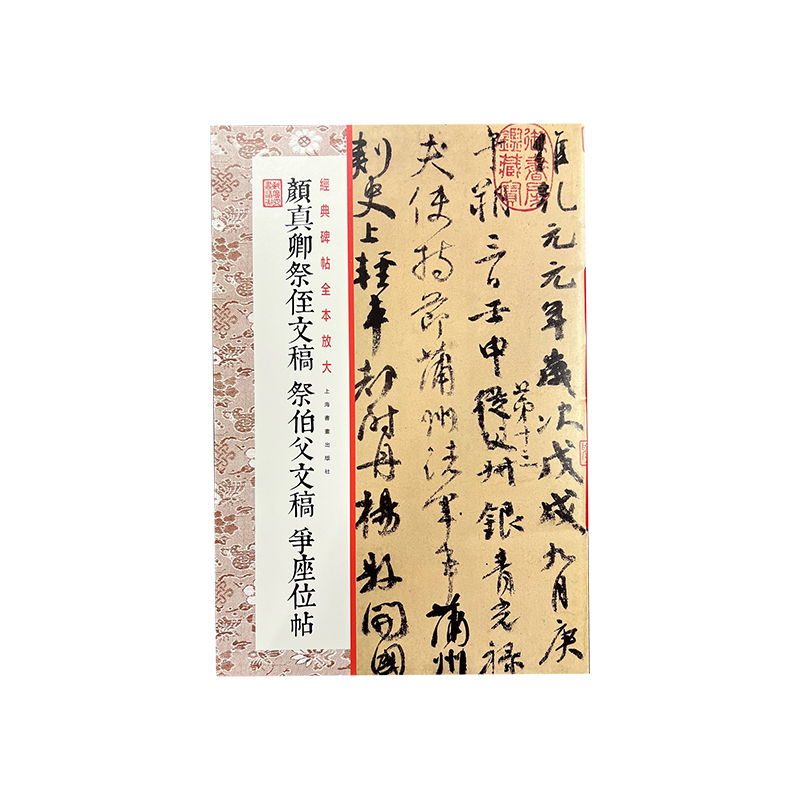 維乾元元年歲次戊戌九月庚
午朔三日壬申從父州銀青光祿
第十三
夫使持節蒲州諸軍事蒲州
刺史上輕車都尉丹楊縣開國
御書房鑑藏寶
經典碑帖全本放大
上海書畫出版社
顏真卿祭侄文稿 祭伯父文稿 爭座位帖